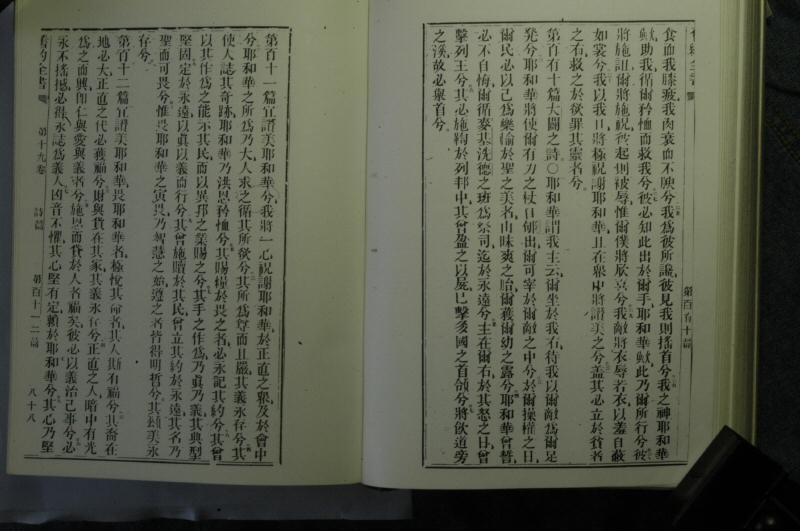 食血我膝疲我肉衰而不腴兮我爲彼所譏彼見我則搖首兮我之神耶和華
歟助我循爾矜恤而救我兮彼必知此出於爾手耶和華歟此乃爾所行兮彼
將施詛爾將施祝彼起則被辱惟爾僕將欣喜兮我敵將衣辱若衣以羞自蔽
如裳兮我以我口將極祝謝耶和華且在眾中將讚美之兮蓋其必立於貧者
之右救之於欲罪其靈者兮
第百有十篇大闢之詩〇耶和華謂我主云爾坐於我右待我以爾敵爲爾足
発兮耶和華將使爾有力之杖自郇出爾可宰於爾敵之中兮於爾操權之日
爾民必以己爲樂輸於聖之美名由昧爽之胎爾獲爾幼之露兮耶和華曾誓
必不自悔爾循麥基洗德之班爲祭司迄於永遠兮主在爾右於其怒之日曾
擊列王兮其必施鞫於列邦中其曾盈之以屍已擊多國之首領兮將飲道旁
之溪故必舉首兮
第百有十篇
第百十一篇宜讚美耶和華兮我將一心祝謝耶和華於正直之眾及於會中
兮耶和華之所爲乃大人求之循其所欲兮其所爲尊而且嚴其義永存兮其
使人誌其奇跡耶和華乃洪恩矜恤兮其賜糧於畏之者必永記其約兮其曾
以其作爲之能示其民而以異邦之業賜之兮其手之作爲乃眞乃義其典型
堅固定於永遠以眞以義而行兮其曾施贖於其民曾立其約於永遠其名乃
聖而可畏兮惟畏耶和華之寅畏乃智慧之始遵之者皆得明哲兮其頌美永
存兮
第百十二篇宜讚美耶和華畏耶和華者極悅其命者其人斯有福兮其裔在
地必大正直之代必獲福兮財與貨在其家其義永存兮正直之人暗中有光
爲之而興卽仁與愛與義者兮施恩而貸於人者福矣彼必以義治己事兮必
永不搖撼必得永誌爲義人凶音不懼其心堅有定賴於耶和華兮其心乃堅
舊約全書 第十九卷 詩篇 第百十一二篇 八十八